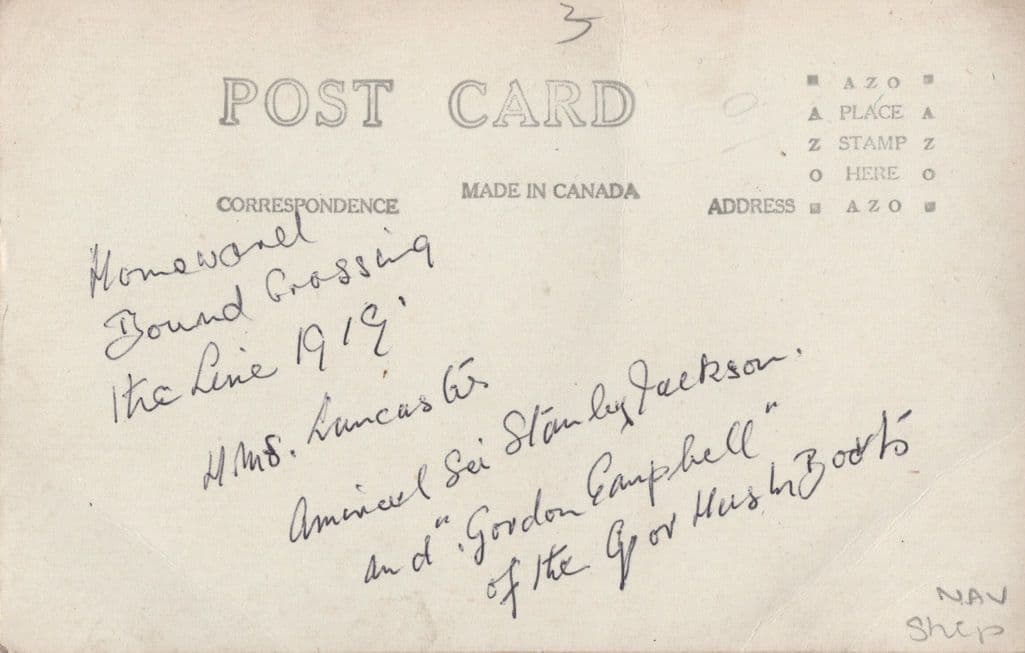 3
POST CARD
CORRESPONDENCE
MADE IN CANADA
ADDRESS
AZO
A PLACE A
Z STAMP Z
O HERE O
AZO
Homeward
Bound Crossing
the Line 1919
HMS. Lancaster
Amiral Sir Stanley Jackson.
and "Gordon Campbell"
of the Q or Hush Boats
NAV
Ship